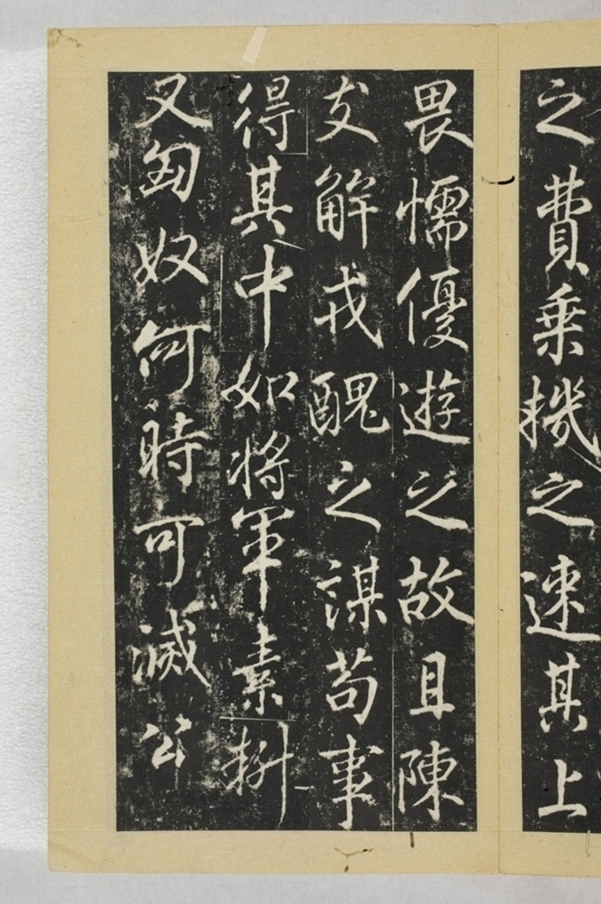 之費乗機之速其上
畏懦優遊之故且陳
支解戎醜之謀苟事
得其中如將軍素
又匈奴何時可滅公